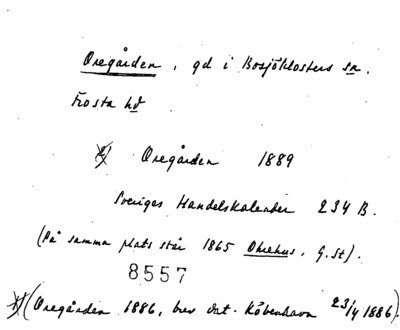 Oregården, gd i Bosjöklosters sn.
Frosta hd
x) Oregården 1889
Sveriges Handelskalender 234 B.
(På samma plats står 1865 Ohrehus, G. St).
8557
x) (Oregården 1886, brev dat. København 23/4 1886).